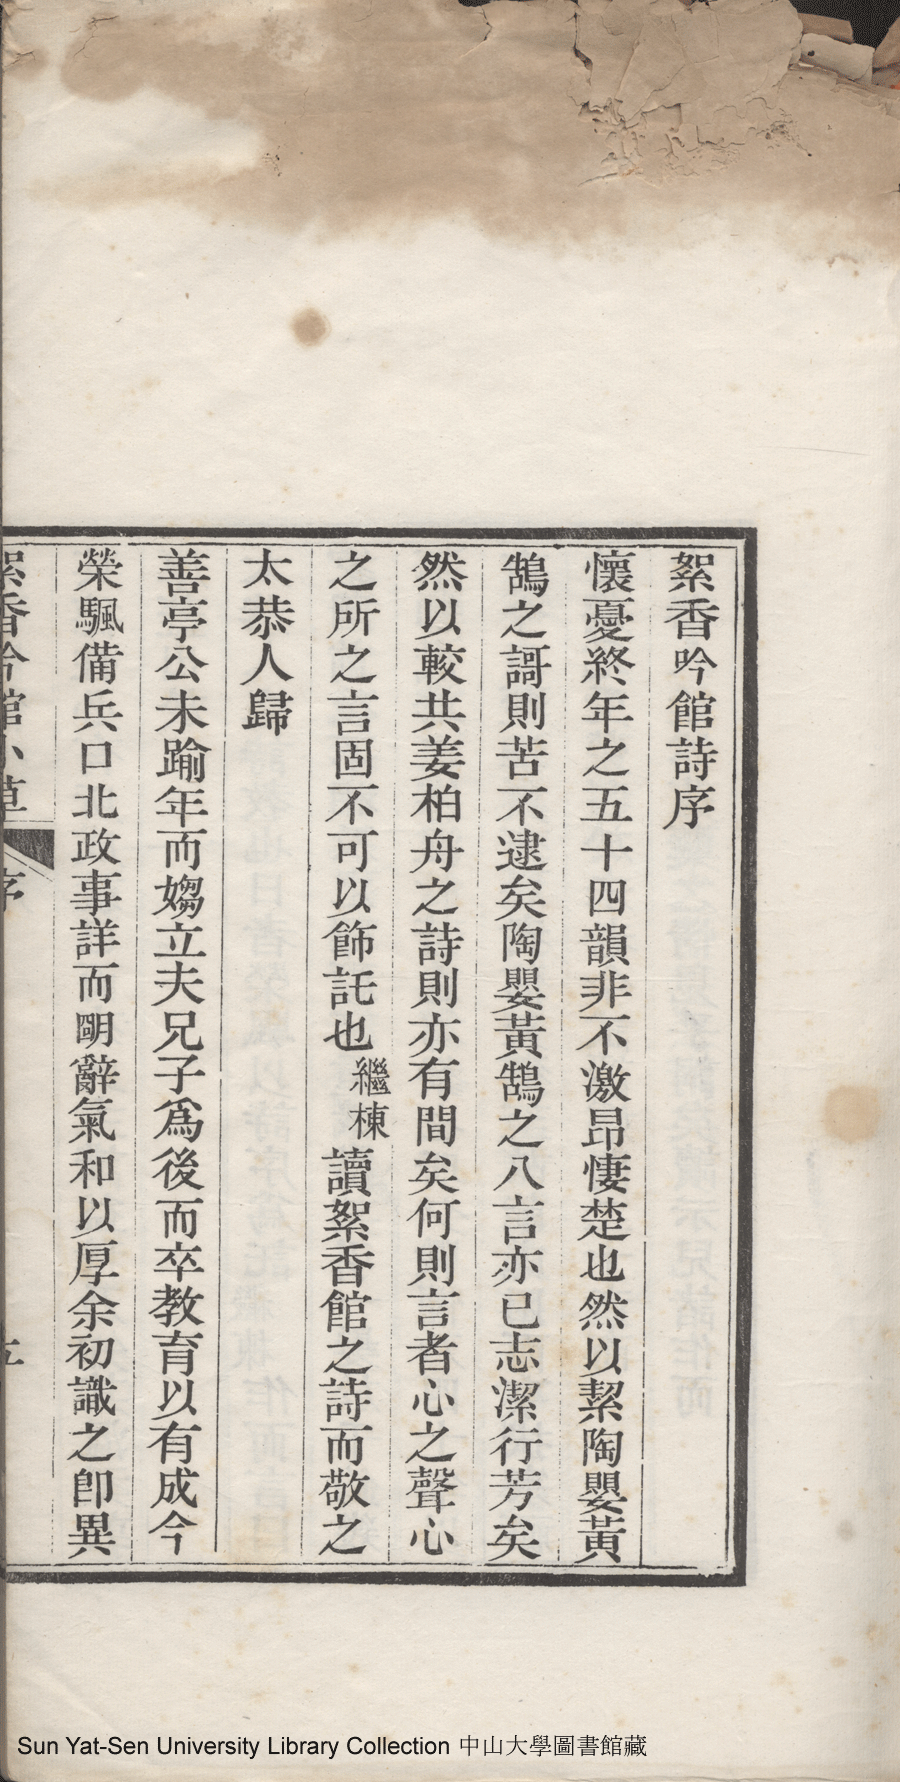 絮香吟館詩序
懷憂終年之五十四韻非不激昂悽楚也然以絜陶嬰黃
鵠之謌則苦不逮矣陶嬰黃鵠之八言亦已志潔行芳矣
然以較共姜柏舟之詩則亦有間矣何則言者心之聲心
之所之言固不可以飾託也繼棟讀絮香館之詩而敬之
太恭人歸
善亭公未踰年而嫠立夫兄子爲後而卒教育以有成今
榮颿備兵口北政事詳而朙辭氣和以厚余初識之卽異
絮香吟館小草
序
五
Sun Yat-Sen University Library Collection 中山大學圖書館藏